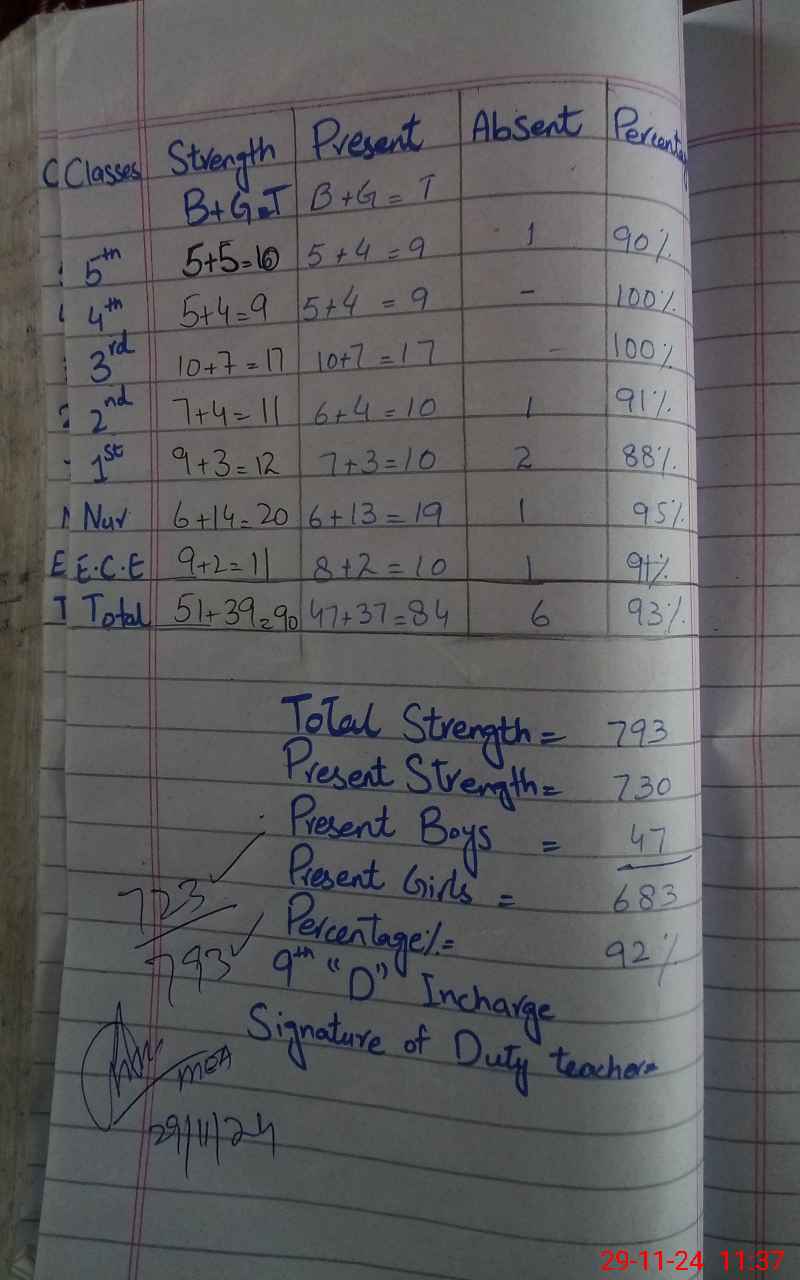 Classes Strength Present Absent Percentag
B+G=T B+G=T
5th 5+5=10 5+4=9 1 90%
4th 5+4=9 5+4=9 - 100%
3rd 10+7=17 10+7=17 - 100%
2nd 7+4=11 6+4=10 1 91%
1st 9+3=12 7+3=10 2 88%
Nur 6+14=20 6+13=19 1 95%
E.C.E 9+2=11 8+2=10 1 91%
Total 51+39=90 47+37=84 6 93%
Total Strength= 793
Present Strength= 730
Present Boys = 47
Present Girls = 683
Percentage%= 92%
723
793
9th "D" Incharge
Signature of Duty teacher=
MEA
29/11/24
29-11-24 11:37